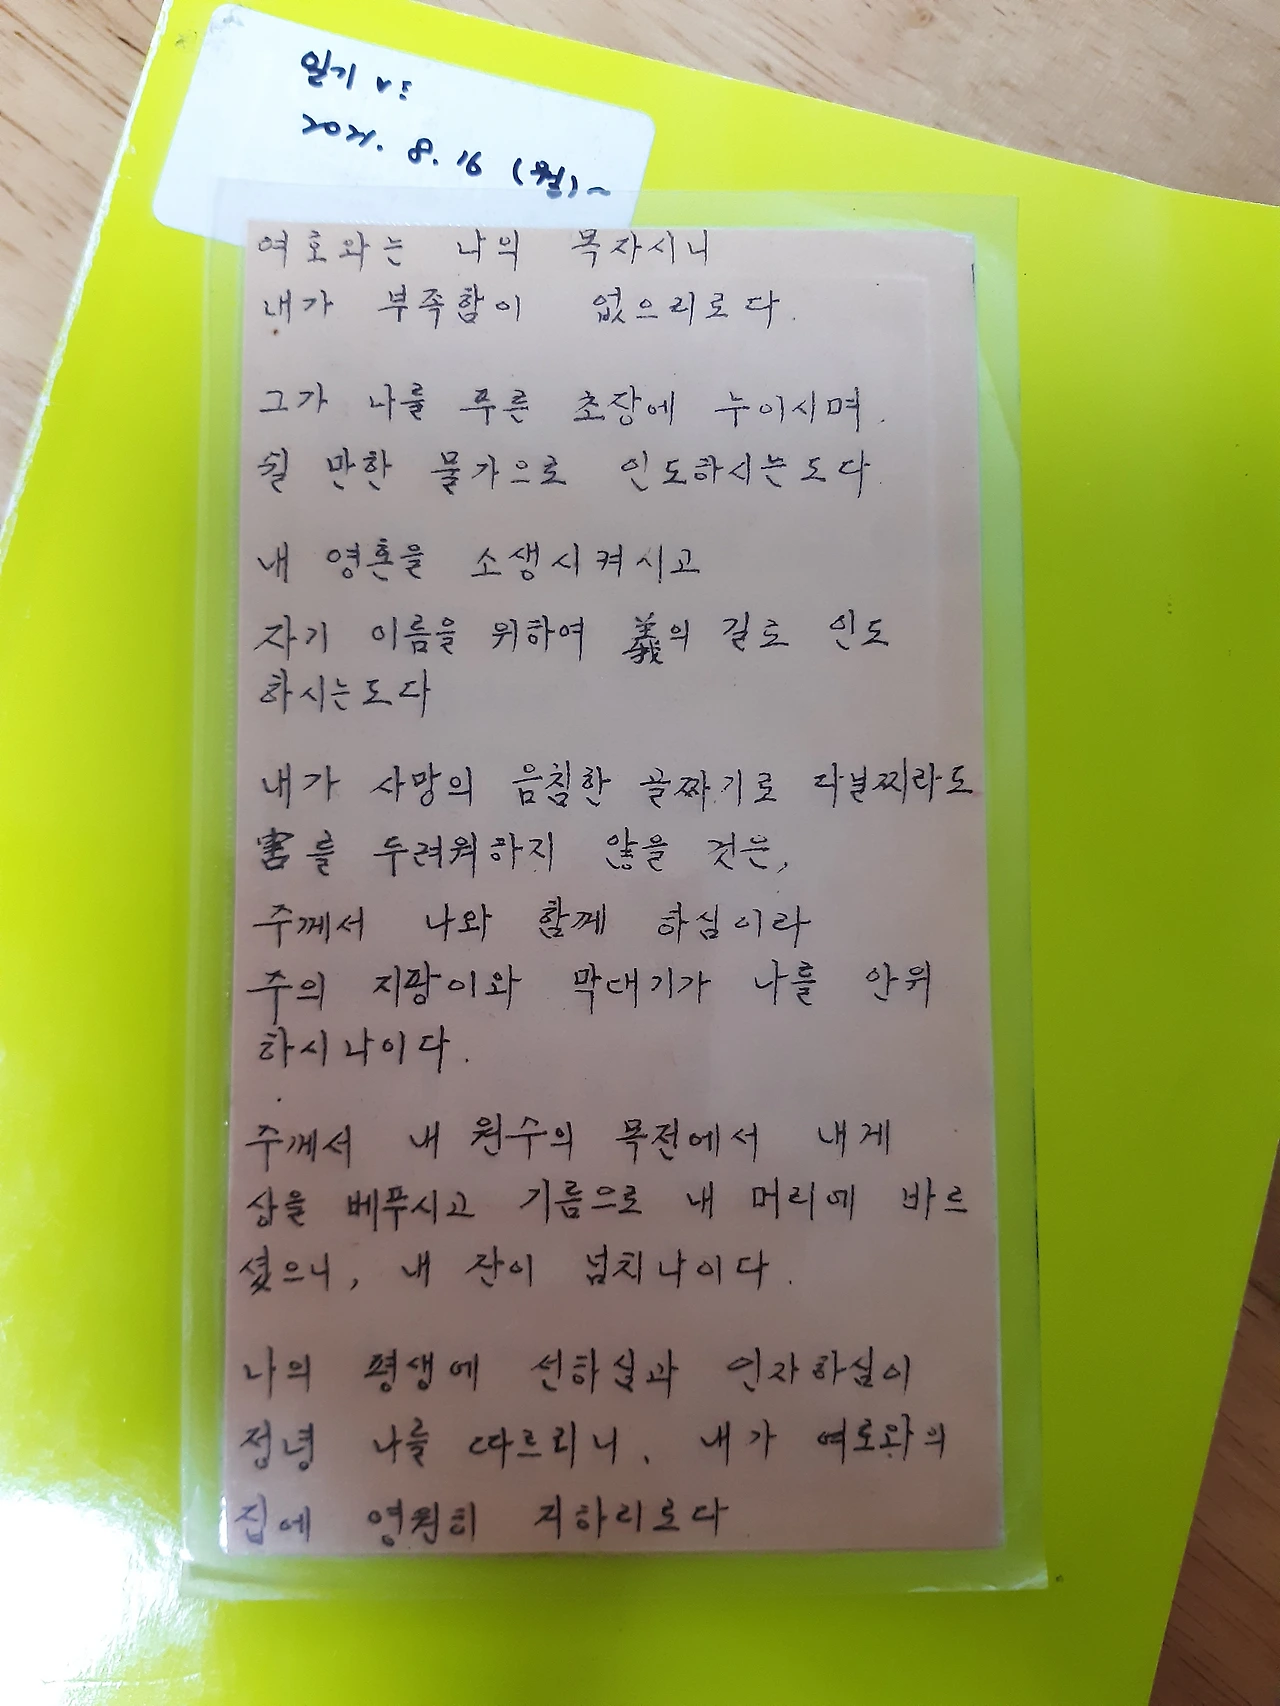 일기 V:
2021. 8. 16 (월)~
여호와는 나의 목자시니
내가 부족함이 없으리로다.
그가 나를 푸른 초장에 누이시며.
쉴 만한 물가으로 인도하시는도다.
내 영혼을 소생시켜시고
자기 이름을 위하여 義의 길로 인도
하시는도다
내가 사망의 음침한 골짜기로 다닐찌라도
害를 두려워하지 않을 것은,
주께서 나와 함께 하심이라
주의 지팡이와 막대기가 나를 안위
하시나이다.
주께서 내 원수의 목전에서 내게
상을 베푸시고 기름으로 내 머리에 바르
셨으니, 내 잔이 넘치나이다.
나의 평생에 선하심과 인자하심이
정녕 나를 따르리니, 내가 여호와의
집에 영원히 거하리로다